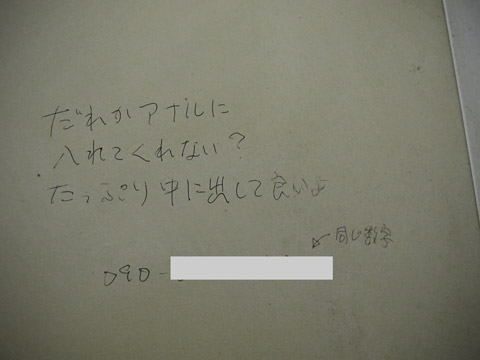 だれかアナルに
入れてくれない?
たっぷり中に出して良いよ
同じ数字
090-